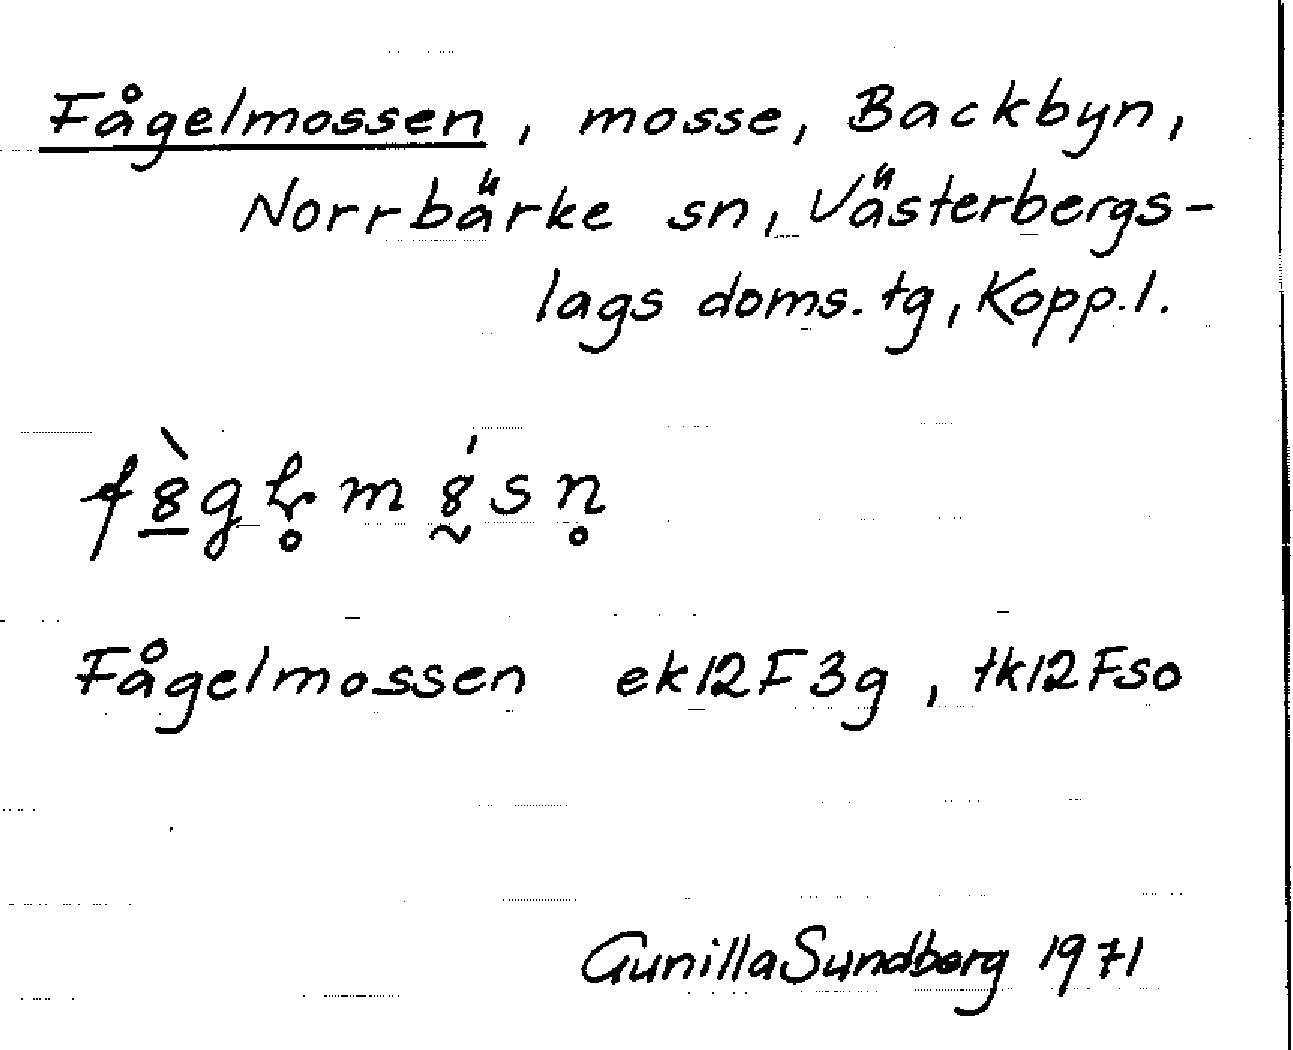 Fågelmossen, mosse, Backbyn,
Norrbärke sn, Västerbergs-
lags doms. tg, Kopp. l.
Fågelmossen ek12F3g, tk12Fso
Gunilla Sundberg 1971